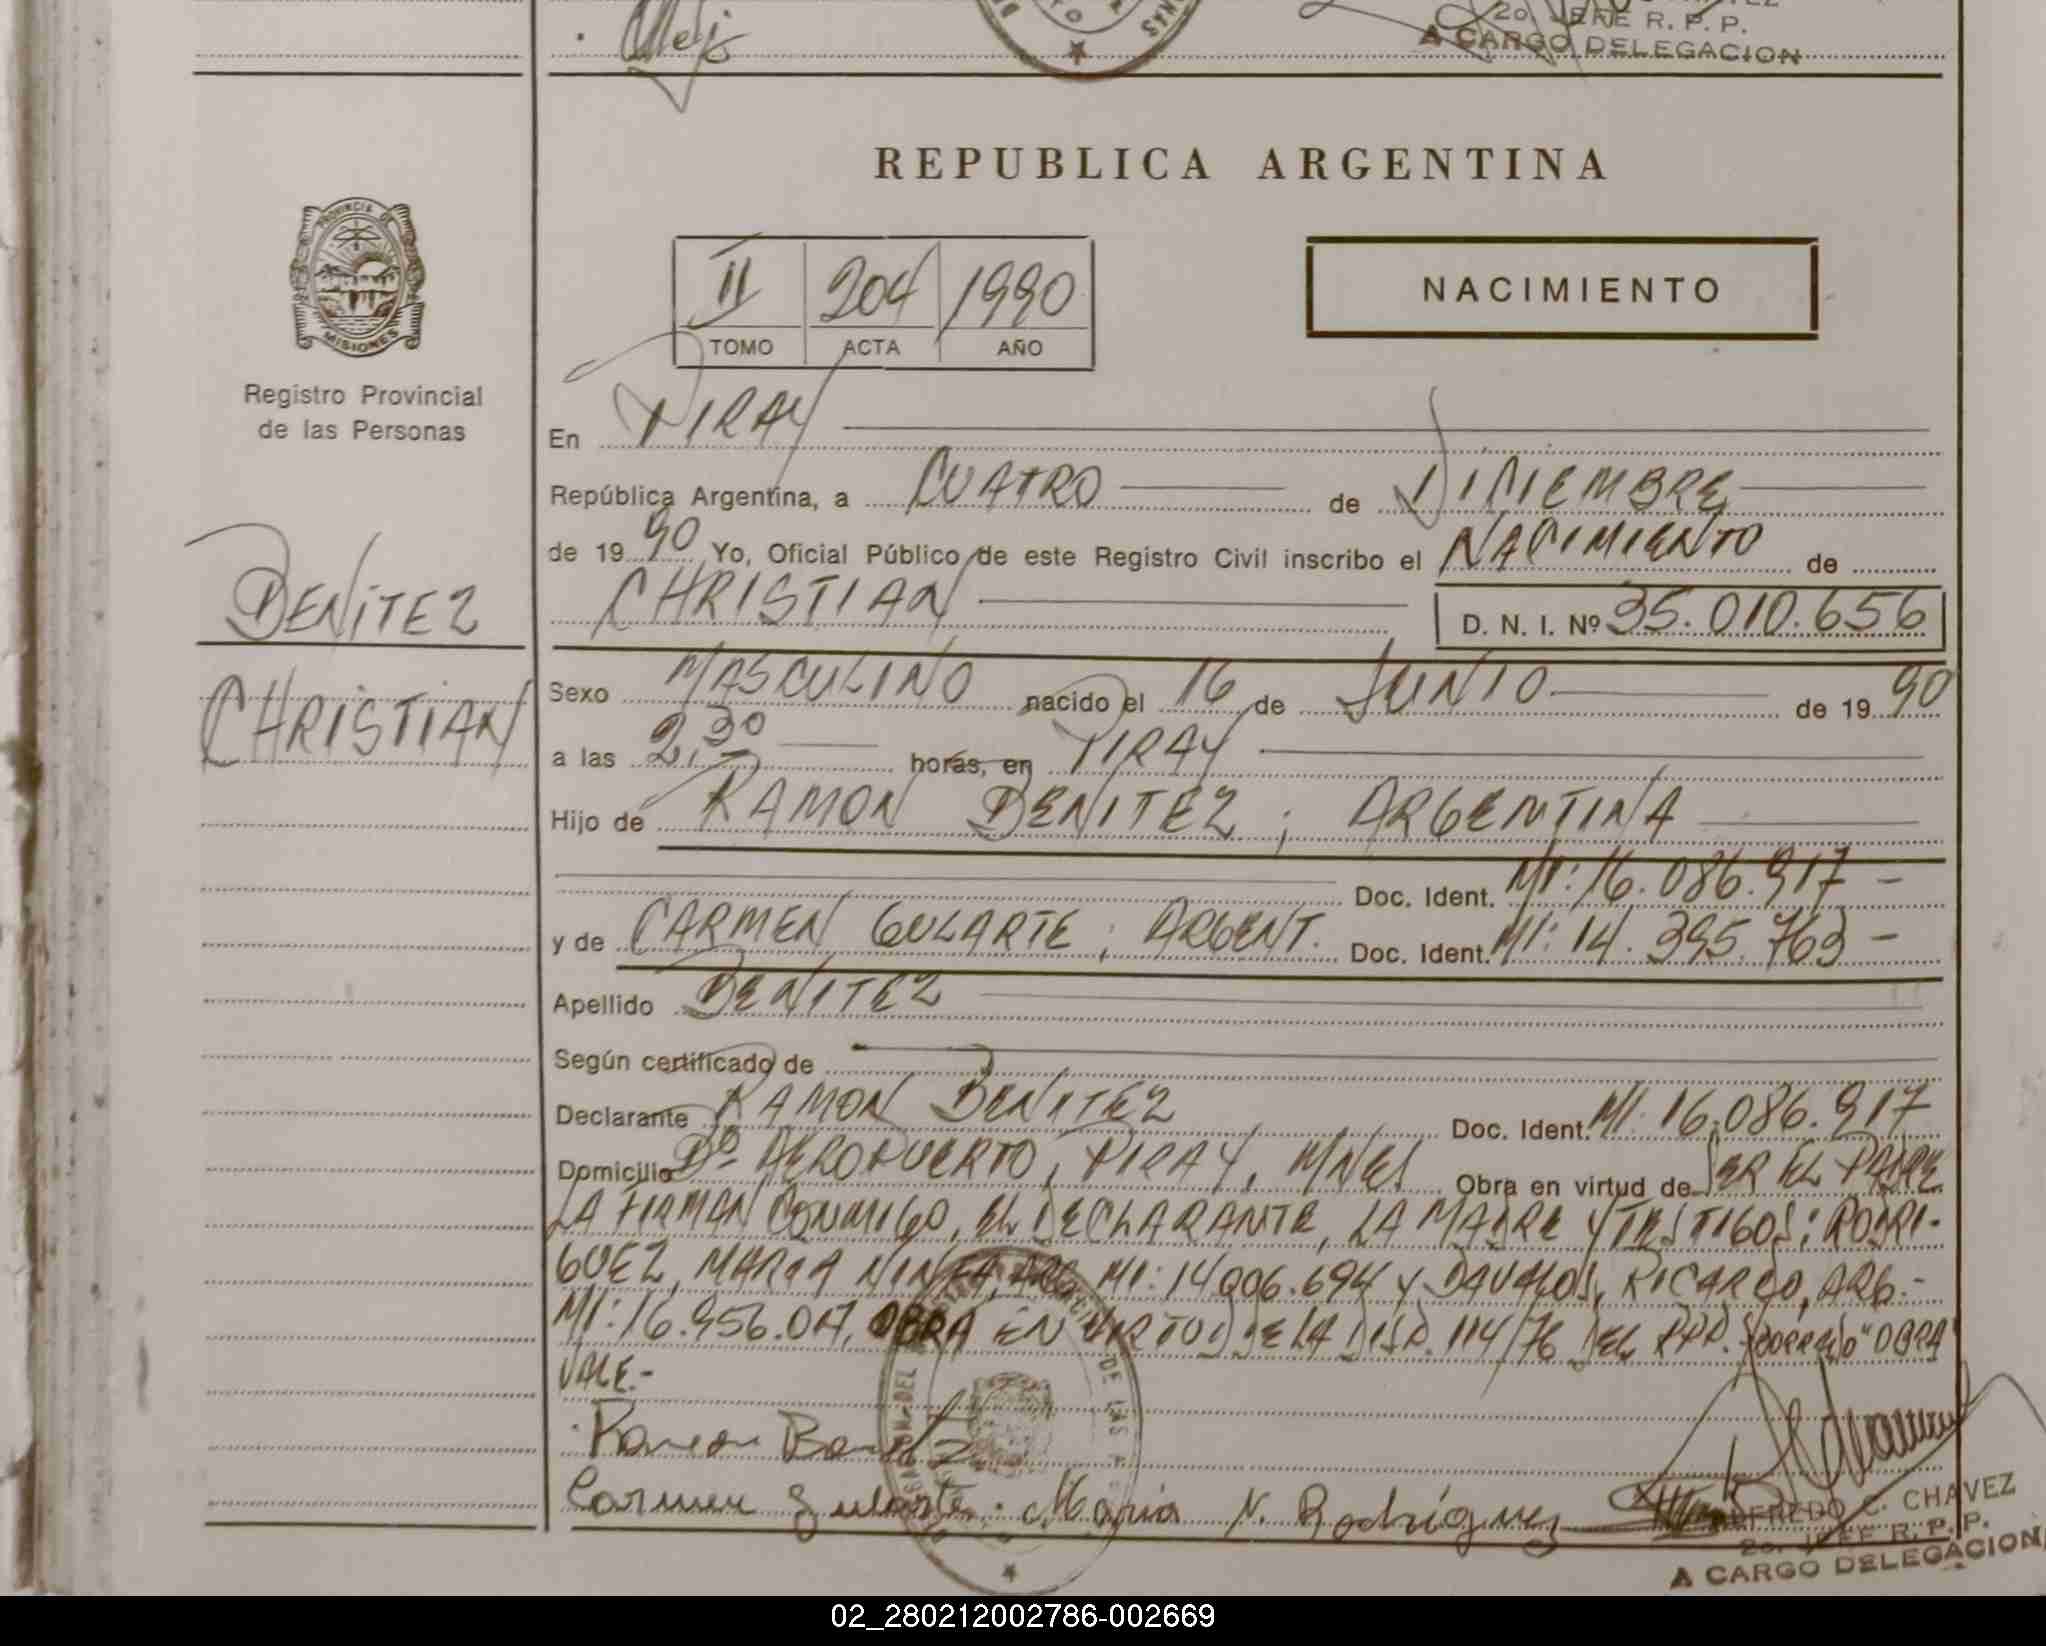 2o. JEFE R. P. P.
A CARGO DELEGACION
REPUBLICA ARGENTINA
PROVINCIA DE
MISIONES
II 204 1990
TOMO ACTA AÑO
NACIMIENTO
Registro Provincial
de las Personas
BENITEZ
CHRISTIAN
En PIRAY
República Argentina, a CUATRO de DICIEMBRE
de 1990 Yo, Oficial Público de este Registro Civil inscribo el NACIMIENTO de
CHRISTIAN D. N. I. Nº 35.010.656
Sexo MASCULINO nacido el 16 de JUNIO de 1990
a las 2,30 horas, en PIRAY
Hijo de RAMON BENITEZ ; ARGENTINA
Doc. Ident. MI: 16.086.917 -
y de CARMEN GULARTE ; ARGENT. Doc. Ident. MI: 14.395.763 -
Apellido BENITEZ
Según certificado de
Declarante RAMON BENITEZ Doc. Ident. MI. 16.086.917
Domicilio Bº AEROPUERTO, PIRAY, MNES Obra en virtud de SER EL PADRE
LA FIRMAN CONMIGO, EL DECLARANTE, LA MADRE Y TESTIGOS: RODRI-
GUEZ, MARIA NINFA, ARG. MI: 14.006.694 Y DAVALOS, RICARDO, ARG.-
MI: 16.956.017, OBRA EN VIRTUD DE LA DISP. 114/76 DEL RPP. Sobrerraspado "OBRA"
VALE.-
Ramon Benitez
Carmen Gularte. Maria N. Rodríguez
ALFREDO C. CHAVEZ
2o. JEFE R. P. P.
A CARGO DELEGACION
02_280212002786-002669